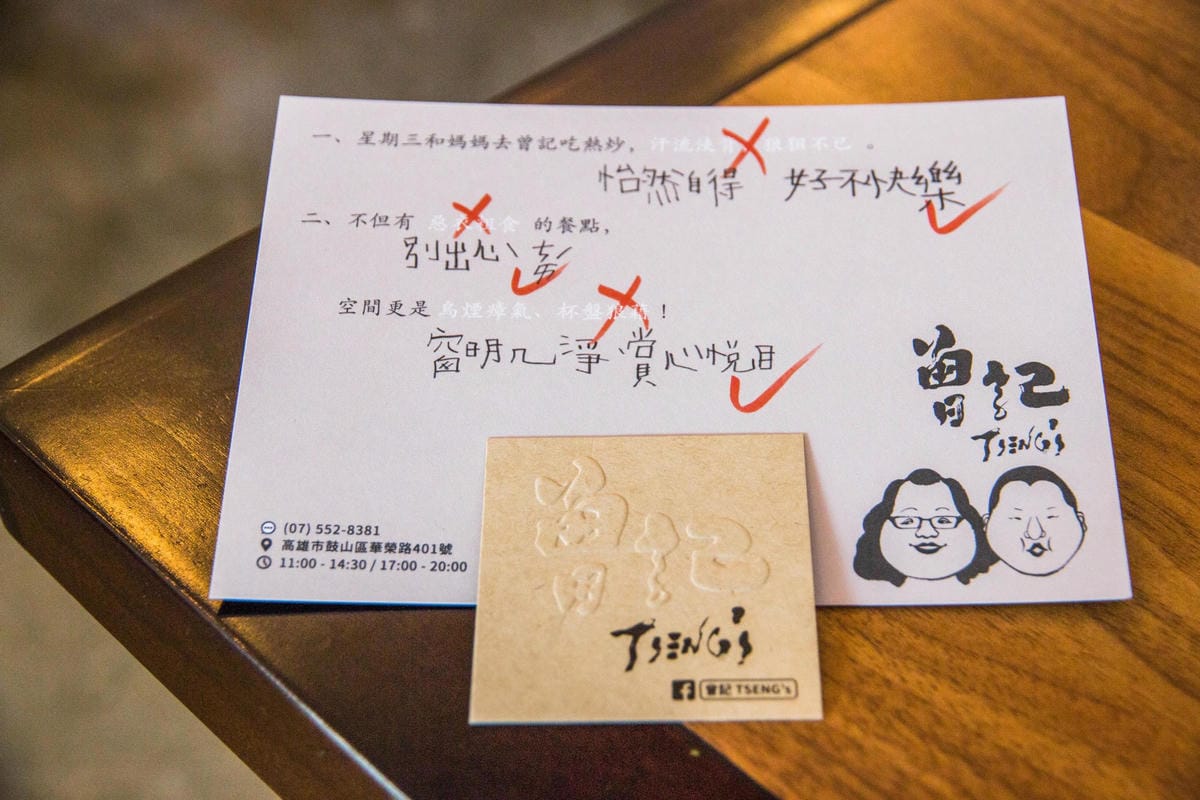 一、星期三和媽媽去曾記吃熱炒，汗流浹背 狼狽不已 。
怡然自得 好不快樂
二、不但有 惡衣粗食 的餐點，
別出心
空間更是烏煙瘴氣、杯盤狼藉！
窗明几淨 賞心悅目
曾記
TSENG's
(07) 552-8381
高雄市鼓山區華榮路401號
11:00 - 14:30 / 17:00 - 20:00
曾記
TSENG's
曾記 TSENG's